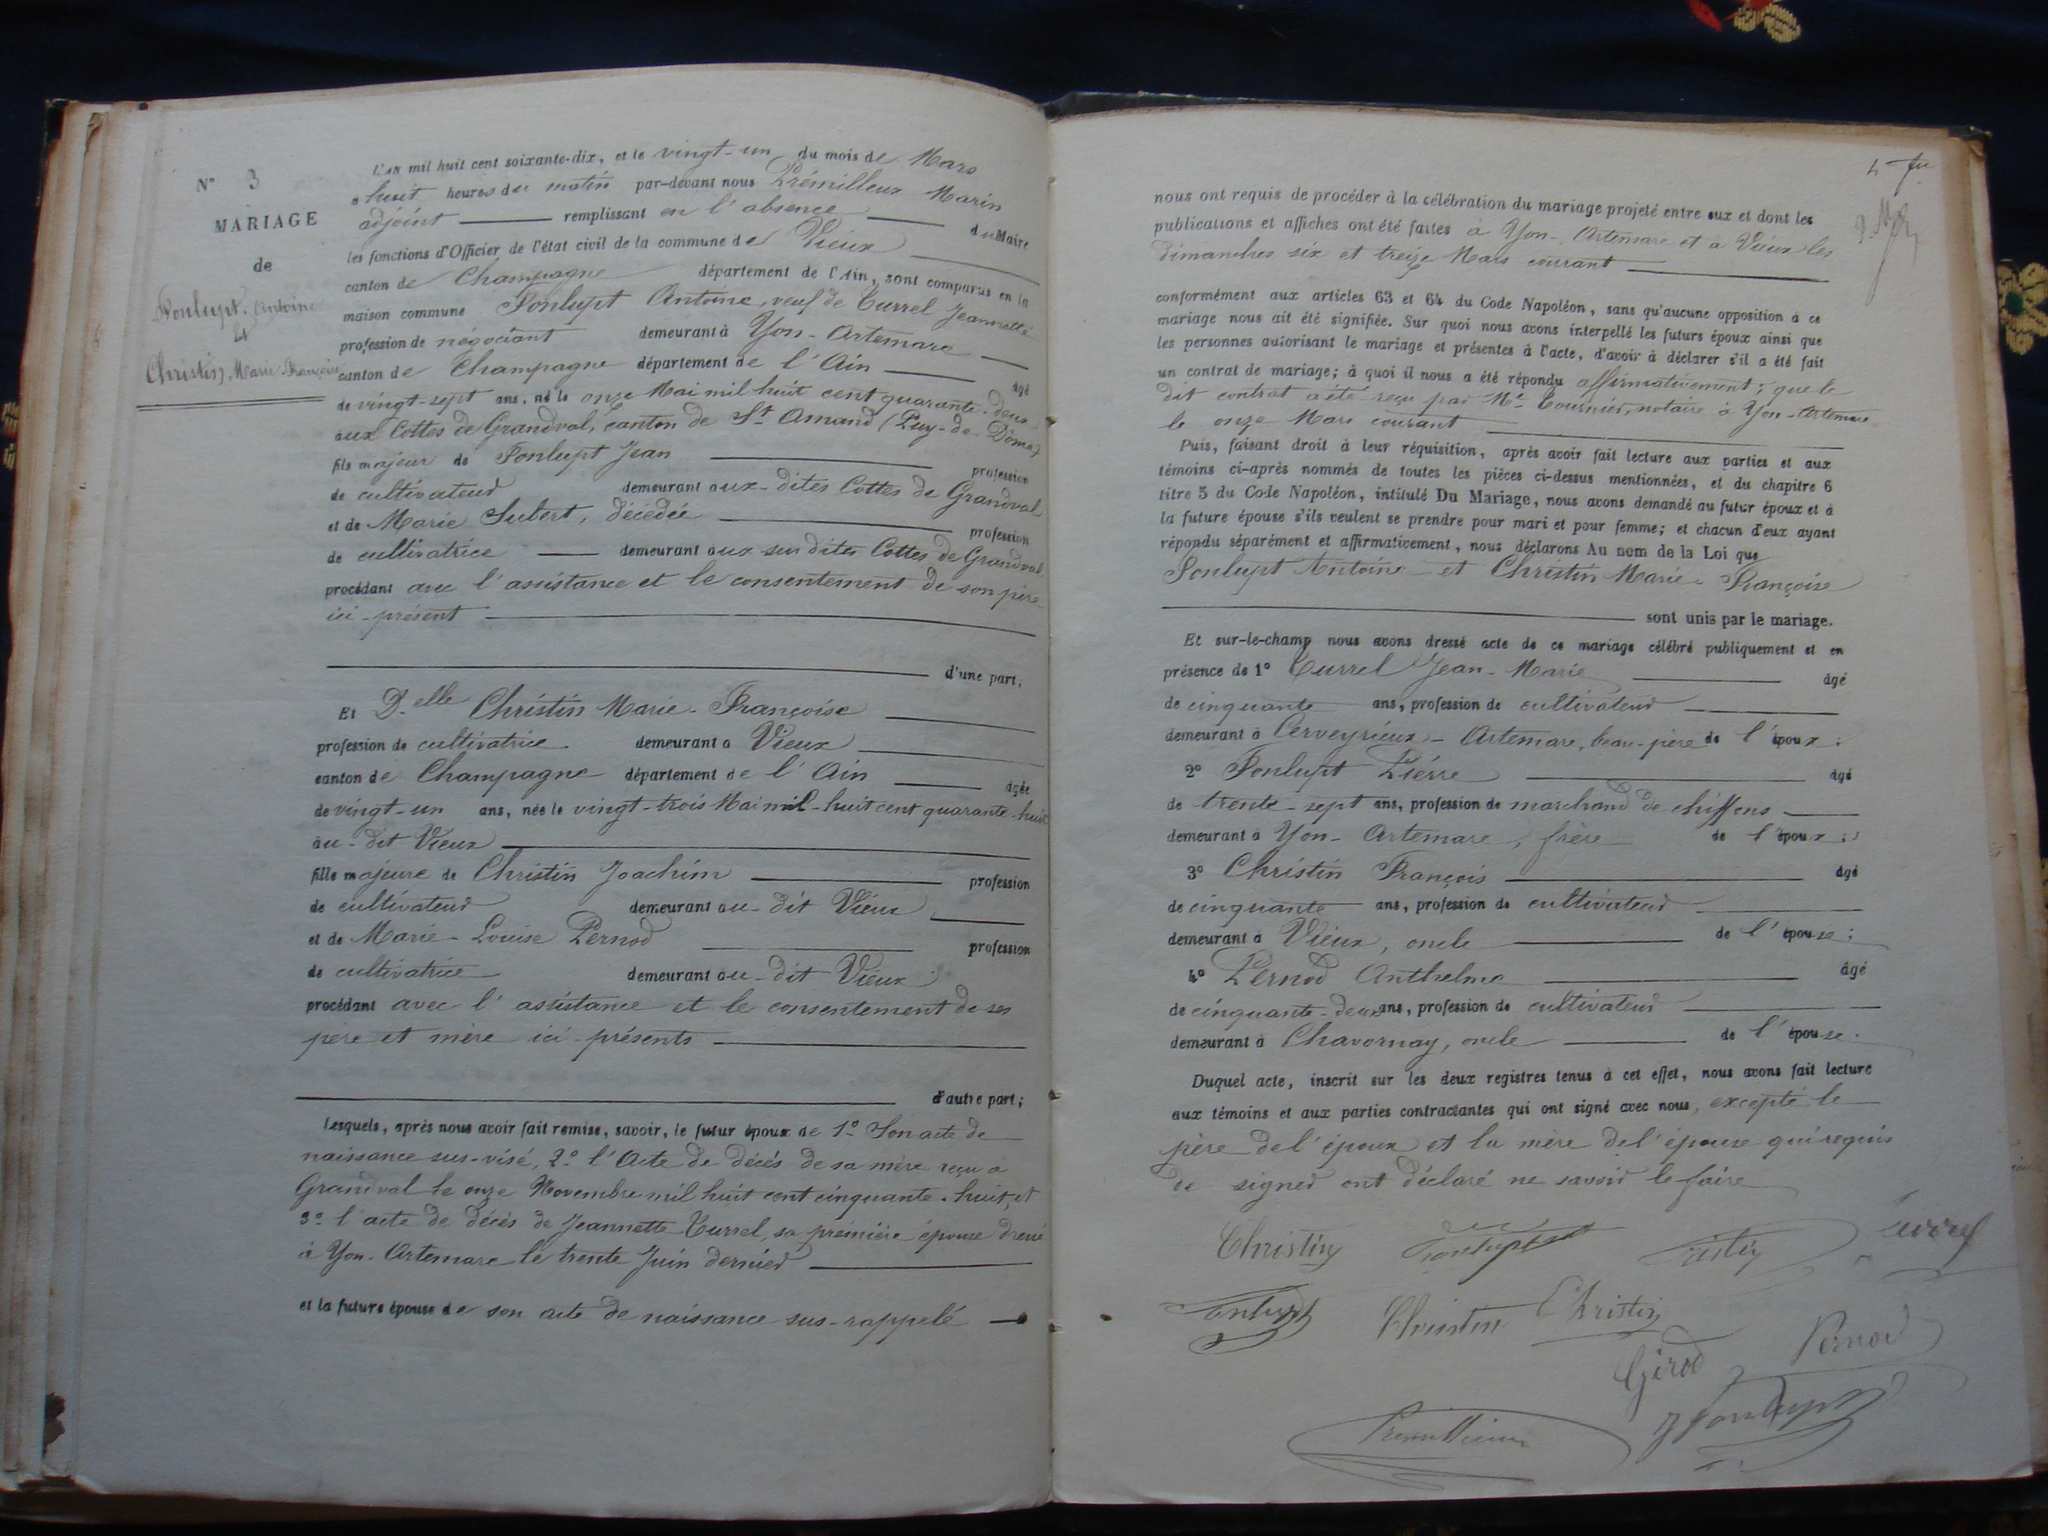 N° 3
MARIAGE
de
Fonlupt Antoine
et
Christin Marie Françoise
L'AN mil huit cent soixante-dix, et le vingt-un du mois de Mars
à huit heures du matin par-devant nous Prémillieux Marin
adjoint remplissant en l'absence du Maire
les fonctions d'Officier de l'état civil de la commune de Vieux
canton de Champagne département de l'Ain, sont comparus en la
maison commune Fonlupt Antoine, veuf de Turrel Jeannette
profession de négociant demeurant à Yon-Artemare
canton de Champagne département de l'Ain âgé
de vingt-sept ans, né le onze Mai mil huit cent quarante-deux
aux Cottes de Grandval, canton de St Amand (Puy-de-Dôme)
fils majeur de Fonlupt Jean profession
de cultivateur demeurant aux-dites Cottes de Grandval
et de Marie Subert, décédée profession
de cultivatrice demeurant aux susdites Cottes de Grandval
procédant avec l'assistance et le consentement de son père
ici-présent
d'une part,
Et D.elle Christin Marie-Françoise
profession de cultivatrice demeurant à Vieux
canton de Champagne département de l'Ain âgée
de vingt-un ans, née le vingt-trois Mai mil-huit cent quarante-huit
au-dit Vieux
fille majeure de Christin Joachim profession
de cultivateur demeurant au-dit Vieux
et de Marie-Louise Pernod profession
de cultivatrice demeurant au-dit Vieux
procédant avec l'assistance et le consentement de ses
père et mère ici-présents
d'autre part;
Lesquels, après nous avoir fait remise, savoir, le futur époux de 1° Son acte de
naissance sus-visé, 2° l'Acte de décès de sa mère reçu à
Grandval le onze Novembre mil huit cent cinquante-huit, et
3° l'acte de décès de Jeannette Turrel, sa première épouse dressé
à Yon-Artemare le trente Juin dernier
et la future épouse de son acte de naissance sus-rappelé
4
nous ont requis de procéder à la célébration du mariage projeté entre eux et dont les
publications et affiches ont été faites à Yon-Artemare et à Vieux les
dimanches six et treize Mars courant
conformément aux articles 63 et 64 du Code Napoléon, sans qu'aucune opposition à ce
mariage nous ait été signifiée. Sur quoi nous avons interpellé les futurs époux ainsi que
les personnes autorisant le mariage et présentes à l'acte, d'avoir à déclarer s'il a été fait
un contrat de mariage; à quoi il nous a été répondu affirmativement; que le
dit contrat a été reçu par Me Tournier, notaire à Yon-Artemare
le onze Mars courant
Puis, faisant droit à leur réquisition, après avoir fait lecture aux parties et aux
témoins ci-après nommés de toutes les pièces ci-dessus mentionnées, et du chapitre 6
titre 5 du Code Napoléon, intitulé Du Mariage, nous avons demandé au futur époux et à
la future épouse s'ils veulent se prendre pour mari et pour femme; et chacun d'eux ayant
répondu séparément et affirmativement, nous déclarons Au nom de la Loi que
Fonlupt Antoine et Christin Marie-Françoise
sont unis par le mariage.
Et sur-le-champ nous avons dressé acte de ce mariage célébré publiquement et en
présence de 1° Turrel Jean-Marie âgé
de cinquante ans, profession de cultivateur
demeurant à Cerveyrieux-Artemare, beau-père de l'époux;
2° Fonlupt Pierre âgé
de trente-sept ans, profession de marchand de chiffons
demeurant à Yon-Artemare, frère de l'époux;
3° Christin François âgé
de cinquante ans, profession de cultivateur
demeurant à Vieux, oncle de l'épouse;
4° Pernod Anthelme âgé
de cinquante-deux ans, profession de cultivateur
demeurant à Chavornay, oncle de l'épouse.
Duquel acte, inscrit sur les deux registres tenus à cet effet, nous avons fait lecture
aux témoins et aux parties contractantes qui ont signé avec nous, excepté le
père de l'époux et la mère de l'épouse qui requis
de signer ont déclaré ne savoir le faire
Christin Fonlupt Turrel
Christin Christin
Girod Pernod
Fonlupt
Prémillieux